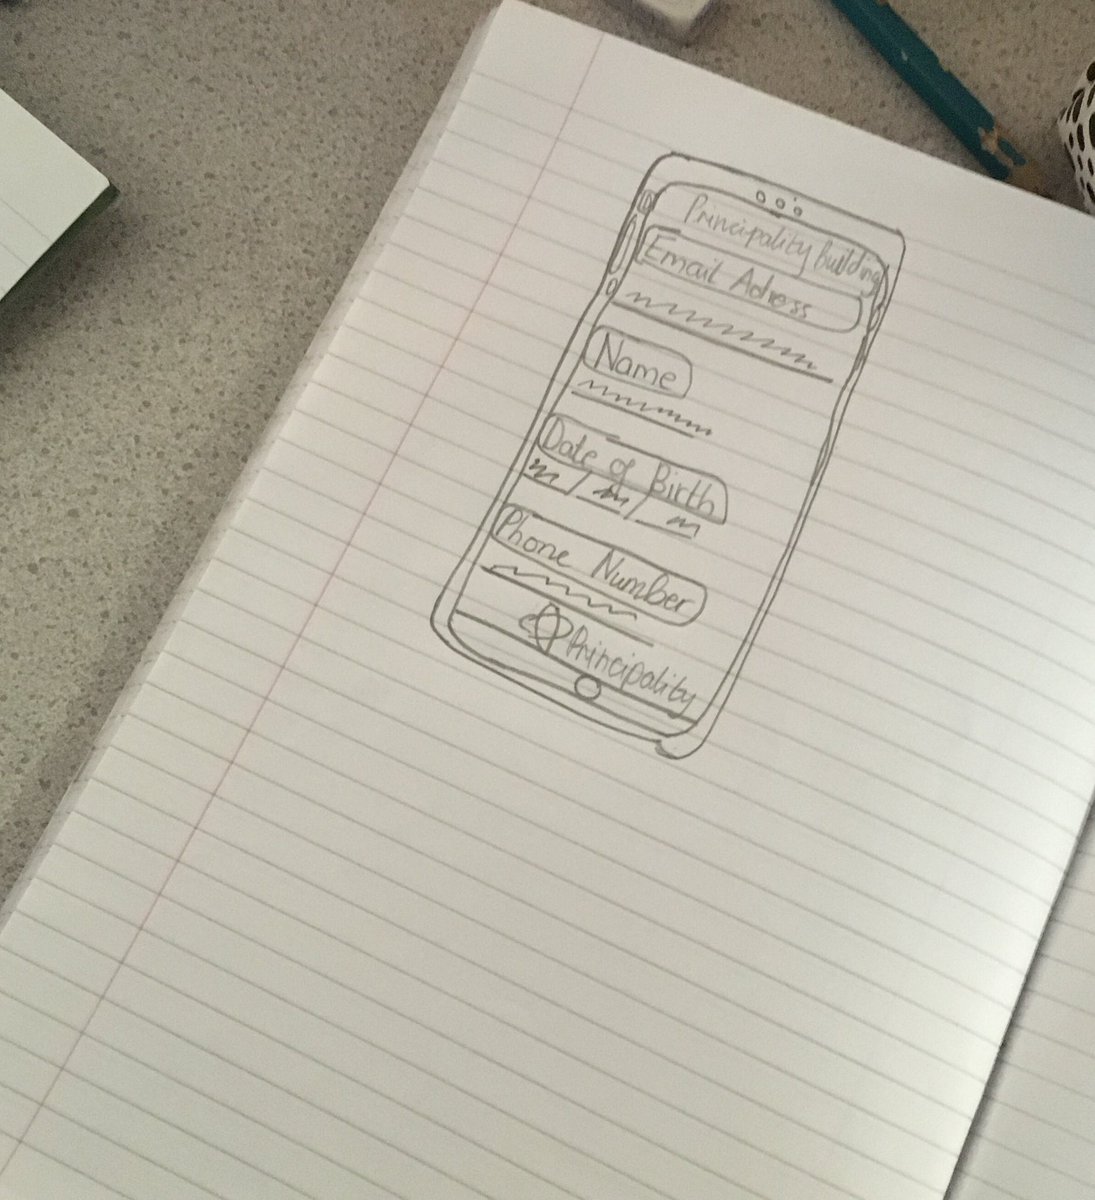 Principality Building
Email Adress
Name
Date of Birth
/ /
Phone Number
Principality